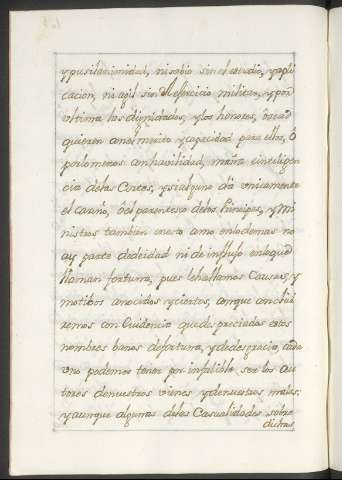 ypusilanimidad, ni sabio sin el estudio, yapli
cacion, ni agil sin el efercicio militar, y por
vltima las dignidades, y los honores, ô se ad
quieren con el merito y capacidad para ellos, ô
porlomenos con habilidad, maña è inteligen
cia delas Cortes, y si alguno dà vnicamente
el cariño, ô el parentesco delos Principes, y Mi
nistros tambien en esto como enlodemas no
ay parte de deidad ni de influjo en loque
llaman fortuna, pues le hallamos Causas, y
motibos conocidos y ciertos, conque conclui
remos con Evidencia que despreciados estos
nombres banos de fortuna, y de desgracia, cada
vno podemos tener por infalible ser los au
tores de nuestros vienes y de nuestros males:
y aunque algunas delas Casualidades sobre
dichas